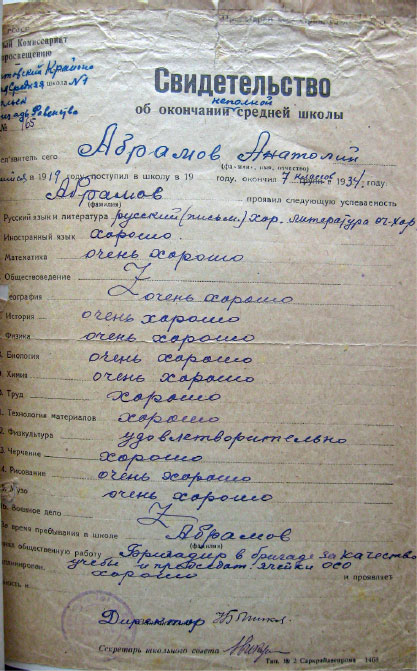 ный Комиссариат
просвещению
Крайоно
Средняя школа №1
Свидетельство
неполной
об окончании средней школы
№ 105
Абрамов Анатолий
ъявитель сего
(фамилия, имя, отчество)
в 1919 году, поступил в школу в 19 году, окончил 7 классов группы в 1934 году
Абрамов проявил следующую успеваемость
(фамилия)
Русский язык и литература русский (письм.) хор. литература оч-хор
Иностранный язык хорошо
Математика очень хорошо
Обществоведение Z
География очень хорошо
История очень хорошо
Физика очень хорошо
Биология очень хорошо
Химия очень хорошо
Труд хорошо
Технология материалов хорошо
Физкультура удовлетворительно
Черчение хорошо
Рисование очень хорошо
Музо очень хорошо
Военное дело Z
За время пребывания в школе Абрамов
(фамилия)
общественную работу Бригадир в бригаде за качество
учебы и председат. ячейки ОСО
хорошо и проявляет
Директор
Секретарь школьного совета
Тип. № 2